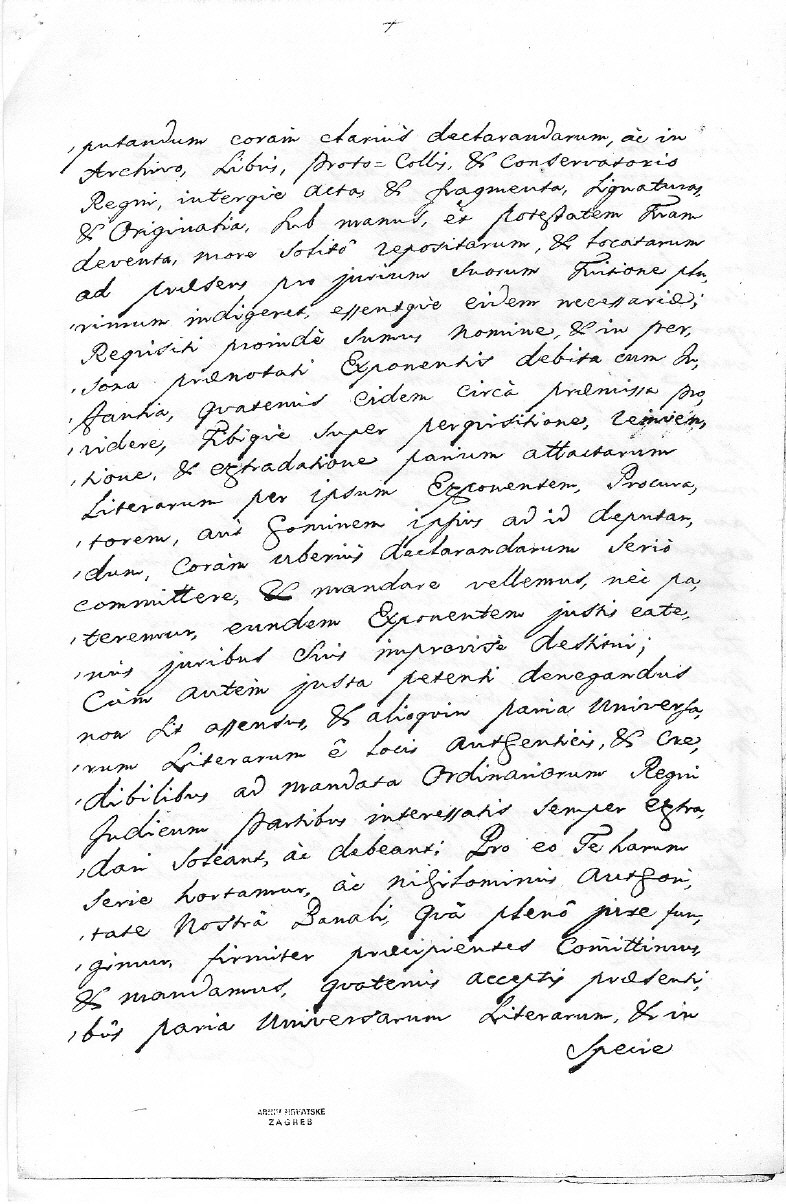 putandum coram clarius declarandarum, ac in
Archivo, Libris, Proto=Collis, & Conservatorio
Regni, interque Acta, & fragmenta, Lignaturas,
& Originalia, sub manus, et potestatem Tuam
deventa, more solitô repositarum, & locatarum
ad præsens pro jurium suorum Tuitione plu,
,rimum indigeret, essentque eidem necessariæ;
Requisiti proinde sumus nomine, & in per,
,sona prænotati Exponentis debita cum In,
,stantia, quatenus eidem circà præmissa pro,
,videre, Tibique super perquisitione, reinven,
,tione, & extradatione parium attactarum
Literarum per ipsum Exponentem, Procura,
,torem, aut hominem ipsius ad id deputan,
,dum, Coràm uberius declarandarum seriò
committere, & mandare vellemus, nèc pa,
,teremur, eundem Exponentem justis eate,
,nus juribus suis improvisè destitui;
Cùm autem justa petenti denegandus
non sit assensus, & alioquin paria Universa,
,rum Literarum ê locis Authenticis, & Cre,
,dibilibus ad mandata Ordinariorum Regni
Judicum Partibus interessatis semper extra,
,dari soleant, àc debeant; Pro eo Te harum
serie hortamur, àc nihilominus Authori,
,tate Nostrâ Banali, quâ plenô jure fun,
,gimur, firmiter præcipientes Com̄ittimus,
& mandamus, quatenus acceptis præsenti,
,bus paria Universarum Literarum, & in
Specie
ARHIV HRVATSKE
ZAGREB